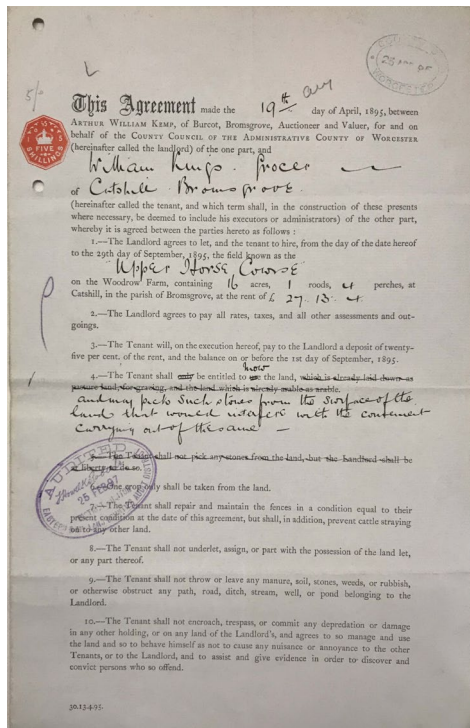 5/-
FIVE
SHILLINGS
WORCESTER
This Agreement made the 19th day of April, 1895, between
ARTHUR WILLIAM KEMP, of Burcot, Bromsgrove, Auctioneer and Valuer, for and on
behalf of the COUNTY COUNCIL OF THE ADMINISTRATIVE COUNTY OF WORCESTER
(hereinafter called the landlord) of the one part, and
William Kings. Grocer
of Catshill Bromsgrove.
(hereinafter called the tenant, and which term shall, in the construction of these presents
where necessary, be deemed to include his executors or administrators) of the other part,
whereby it is agreed between the parties hereto as follows :
1.—The Landlord agrees to let, and the tenant to hire, from the day of the date hereof
to the 29th day of September, 1895, the field known as the
"Upper Horse Course"
on the Woodrow Farm, containing 16 acres, 1 roods, 4 perches, at
Catshill, in the parish of Bromsgrove, at the rent of £ 27. 13. 4
2.—The Landlord agrees to pay all rates, taxes, and all other assessments and out-
goings.
3.—The Tenant will, on the execution hereof, pay to the Landlord a deposit of twenty-
five per cent. of the rent, and the balance on or before the 1st day of September, 1895.
mow
4.—The Tenant shall only be entitled to use the land, which is already laid down as
pasture land, for grazing, and the land which is already arable as arable.
and may pick such stones from the surface of the
land that would interfere with the convenient
carrying out of the same —
5.—The Tenant shall not pick any stones from the land, but the landlord shall be
at liberty to do so.
6.—One crop only shall be taken from the land.
7.—The Tenant shall repair and maintain the fences in a condition equal to their
present condition at the date of this agreement, but shall, in addition, prevent cattle straying
on to any other land.
AUDITED
25 FEB 97
8.—The Tenant shall not underlet, assign, or part with the possession of the land let,
or any part thereof.
9.—The Tenant shall not throw or leave any manure, soil, stones, weeds, or rubbish,
or otherwise obstruct any path, road, ditch, stream, well, or pond belonging to the
Landlord.
10.—The Tenant shall not encroach, trespass, or commit any depredation or damage
in any other holding, or on any land of the Landlord's, and agrees to so manage and use
the land and so to behave himself as not to cause any nuisance or annoyance to the other
Tenants, or to the Landlord, and to assist and give evidence in order to discover and
convict persons who so offend.
30.13.4.95.